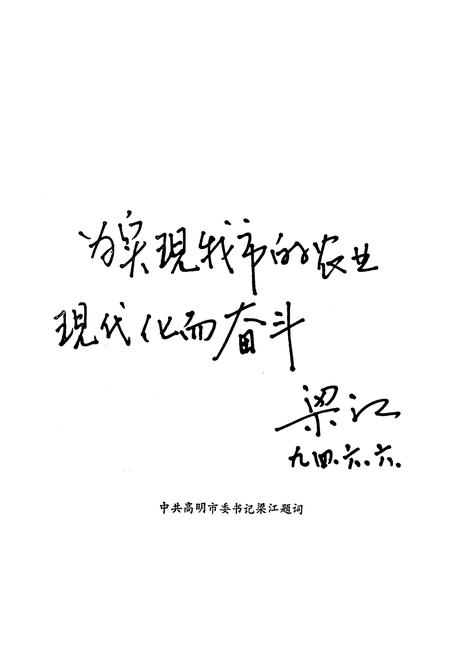 为实现我市的农业
现代化而奋斗
梁江
九四.六.六.
中共高明市委书记梁江题词